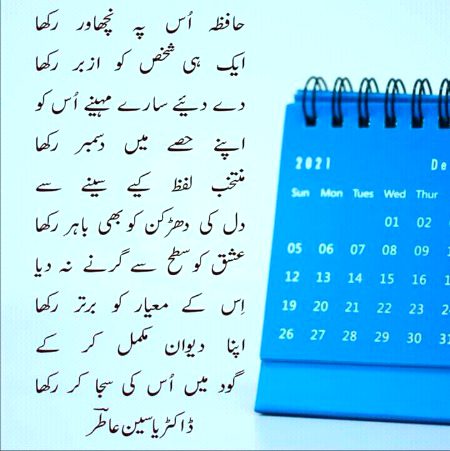 حافظہ اُس پہ نچھاور رکھا
ایک ہی شخص کو ازبر رکھا
دے دئیے سارے مہینے اُس کو
اپنے حصے میں دسمبر رکھا
منتخب لفظ کیے سینے سے
دل کی دھڑکن کو بھی باہر رکھا
عشق کو سطح سے گرنے نہ دیا
اِس کے معیار کو برتر رکھا
اپنا دیوان مکمل کر کے
گود میں اُس کی سجا کر رکھا
ڈاکٹر یاسین عاطر
2021 De
Sun Mon Tues Wed Thur
01 02
05 06 07 08 09
12 13 14 15 16
19 20 21 22 23
26 27 28 29 30 31